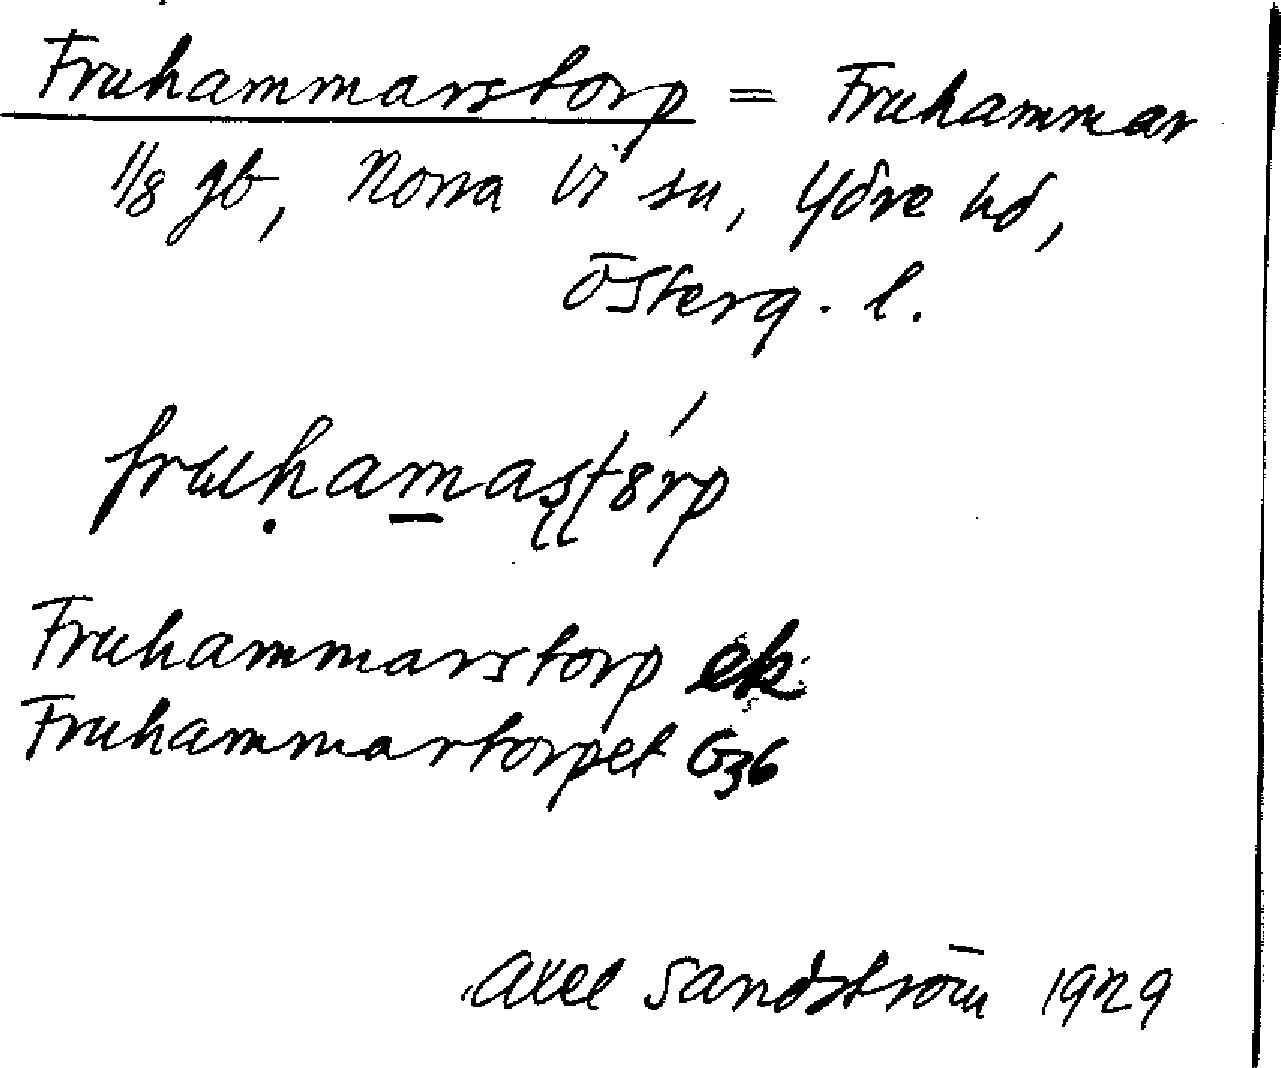 Fruhammarstorp = Fruhammar
1/8 gb, Norra Vi sn, Ydre hd,
Österg. l.
Fruhammarstorp ek.
Fruhammartorpet G36
Axel Sandström 1929